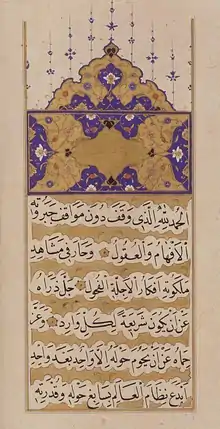 الحمد لله الذى وقف دون مواقف جبروته
الافهام والعقول وحار فى مشاهد
ملكوته افكار الاجلة الفحول جل ذراه
عن ان يكون شريعة لكل وارد وعز
حماه عن ان يحوم حوله الا واحد بعد واحد
ابدع نظام العالم ببدايع حوله وقدرته